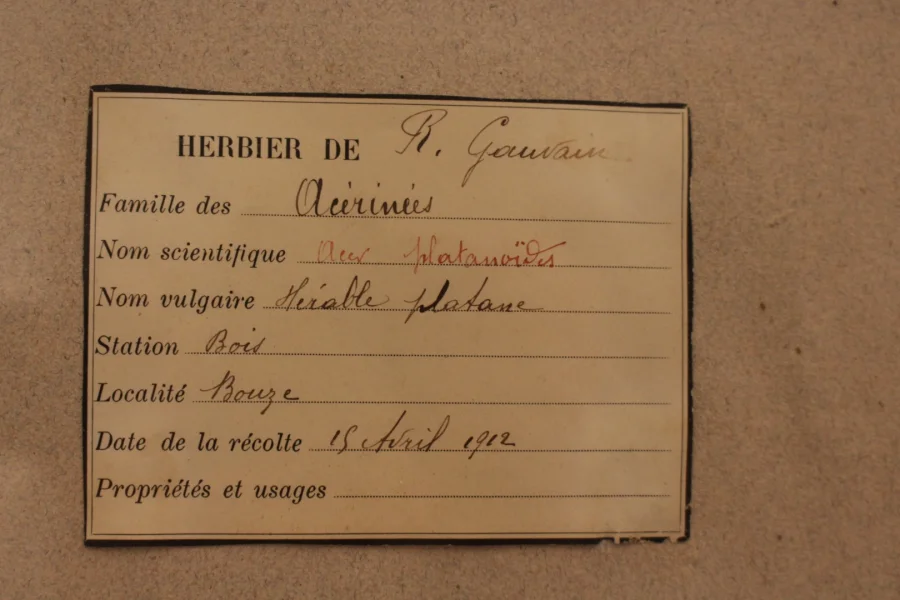 HERBIER DE R. Gauvain
Famille des Acérinées
Nom scientifique Acer platanoïdes
Nom vulgaire Hérable platane
Station Bois
Localité Bouze
Date de la récolte 15 Avril 1912
Propriétés et usages